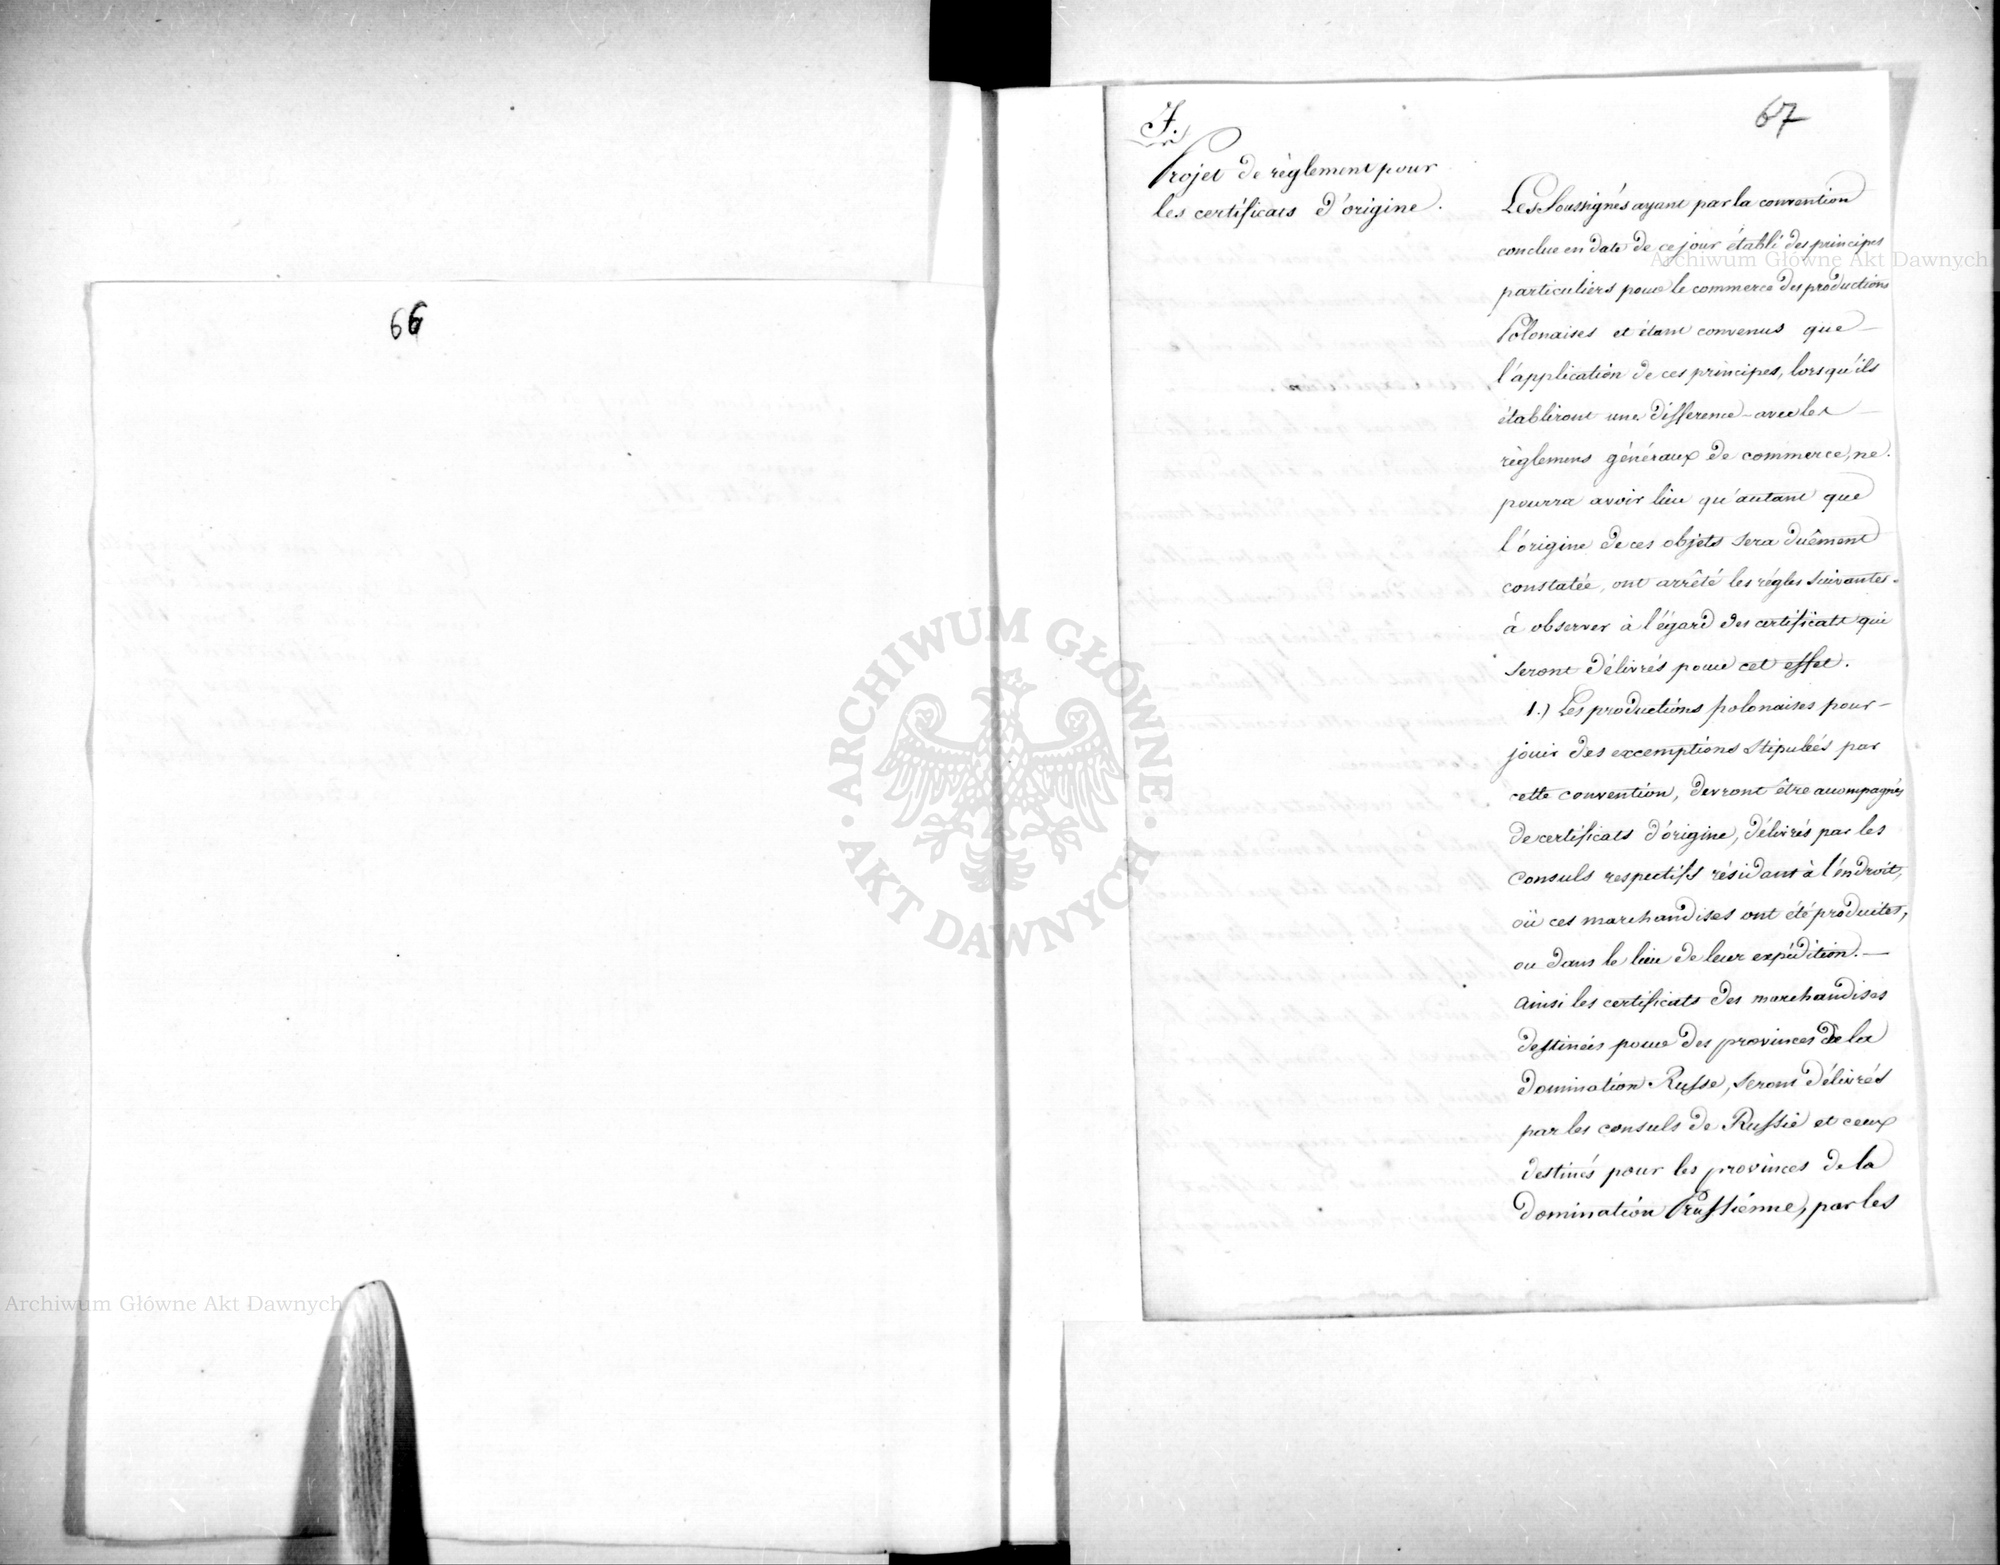 66
67
F.
Projet de règlement pour
les certificats d'origine.
Les Soussignés ayant par la convention
conclue en date de ce jour établi des principes
particuliers pour le commerce des productions
Polonaises et étant convenus que
l'application de ces principes, lorsqu'ils
établiront une différence avec les
règlemens généraux de commerce, ne
pourra avoir lieu qu'autant que
l'origine de ces objets sera duêment
constatée, ont arrêté les régles suivantes
à observer à l'égard des certificats qui
seront délivrés pour cet effet.
1.) Les productions polonaises pour
jouir des excemptions stipulées par
cette convention, devront être accompagnés
de certificats d'origine, délivrés par les
Consuls respectifs résidant à l'éndroit,
où ces marchandises ont été produites,
ou dans le lieu de leur expédition. —
Ainsi les certificats des marchandises
destinées pour des provinces de la
domination Russe, seront délivrés
par les consuls de Russie et ceux
destinés pour les provinces de la
domination Prussiénne, par les
ARCHIWUM GŁÓWNE
AKT DAWNYCH
Archiwum Główne Akt Dawnych
Archiwum Główne Akt Dawnych
Archiwum Główne Akt Dawnych